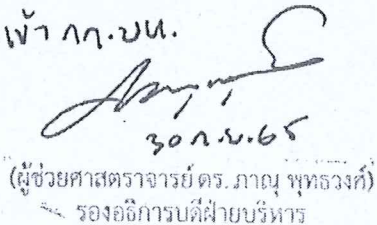 เข้า กก.บห.
30 ก.ย. 65
(ผู้ช่วยศาสตราจารย์ ดร. ภาณุ พุทธวงศ์)
รองอธิการบดีฝ่ายบริหาร